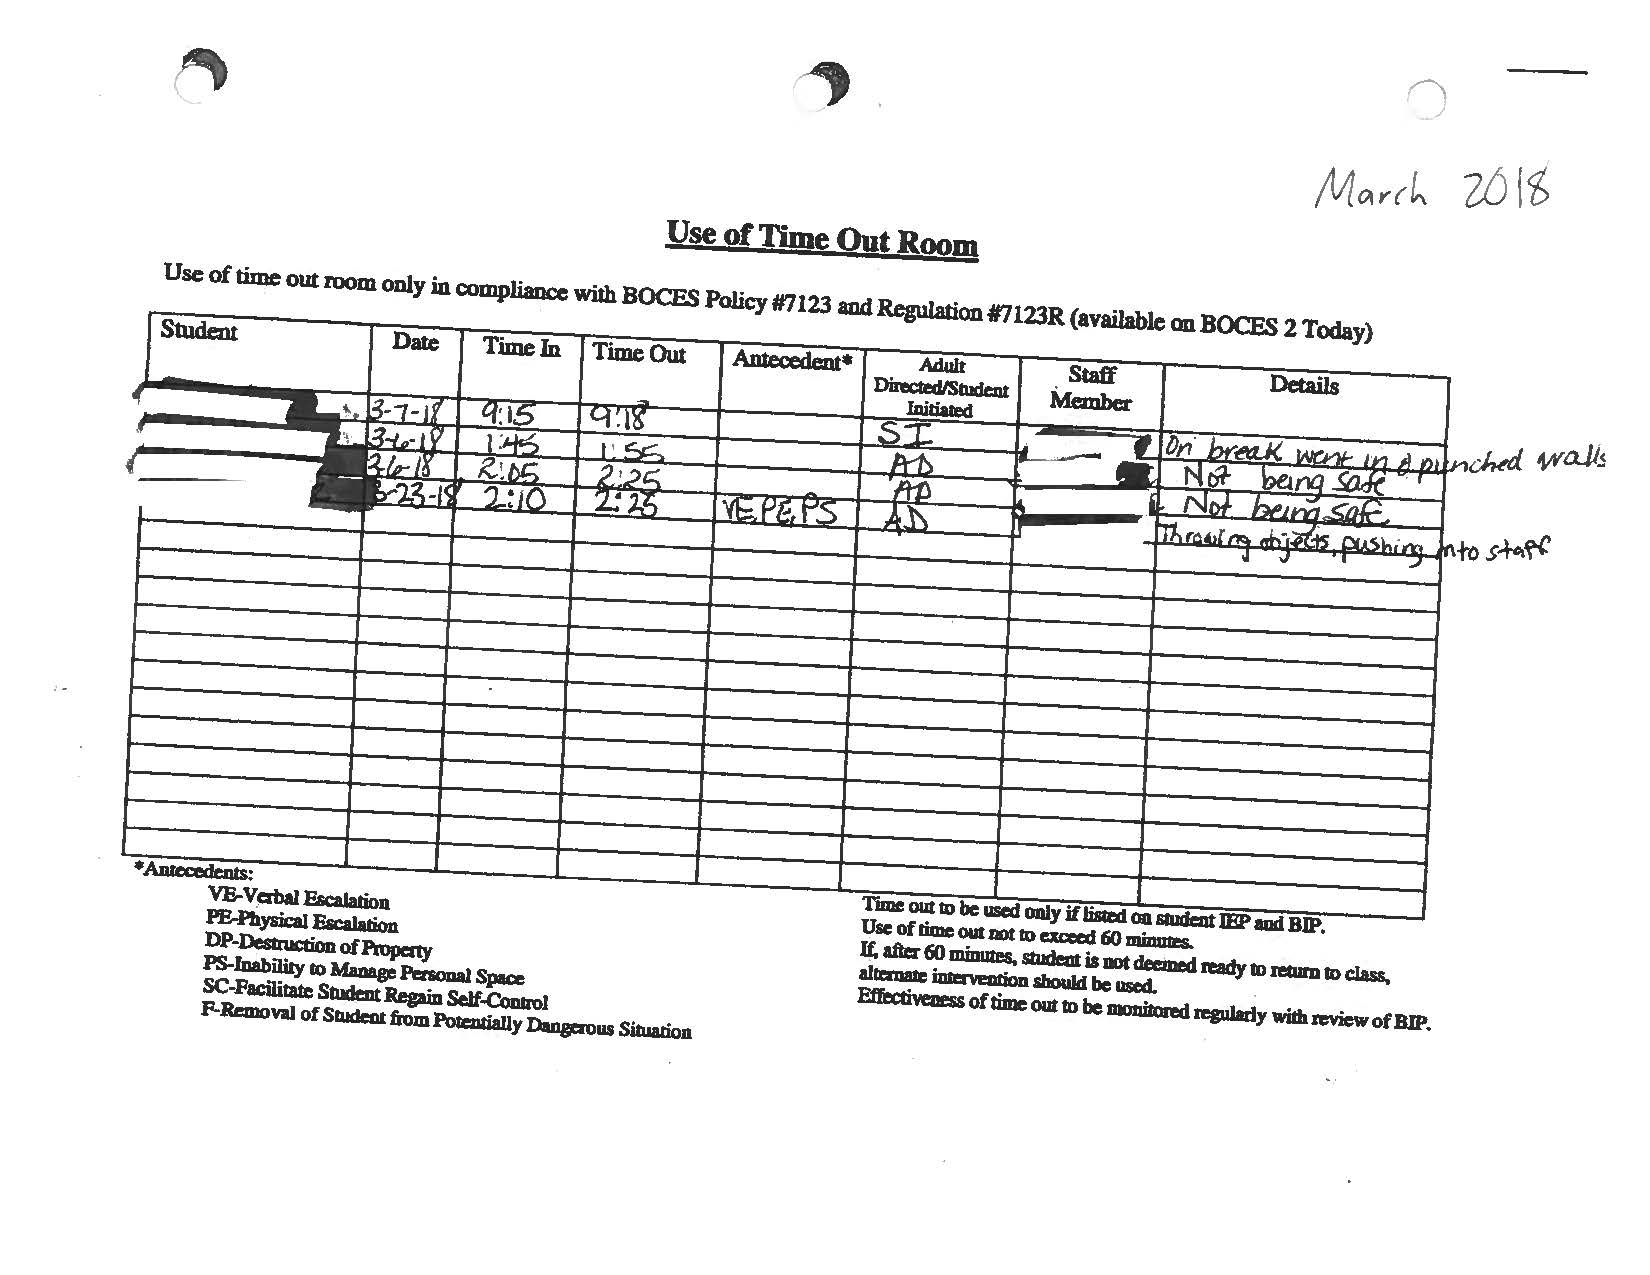 March 2018
Use of Time Out Room
Use of time out room only in compliance with BOCES Policy #7123 and Regulation #7123R (available on BOCES 2 Today)
Student Date Time In Time Out Antecedent* Adult Directed/Student Initiated Staff Member Details
3-7-18 9:15 9:18 SI On break went in & punched walls
3-6-18 1:45 1:55 AD Not being safe
3-6-18 2:05 2:25 AD Not being safe
3-23-18 2:10 2:25 VE, PE, PS AD Throwing objects, pushing into staff
*Antecedents:
VE-Verbal Escalation
PE-Physical Escalation
DP-Destruction of Property
PS-Inability to Manage Personal Space
SC-Facilitate Student Regain Self-Control
F-Removal of Student from Potentially Dangerous Situation
Time out to be used only if listed on student IEP and BIP.
Use of time out not to exceed 60 minutes.
If, after 60 minutes, student is not deemed ready to return to class,
alternate intervention should be used.
Effectiveness of time out to be monitored regularly with review of BIP.